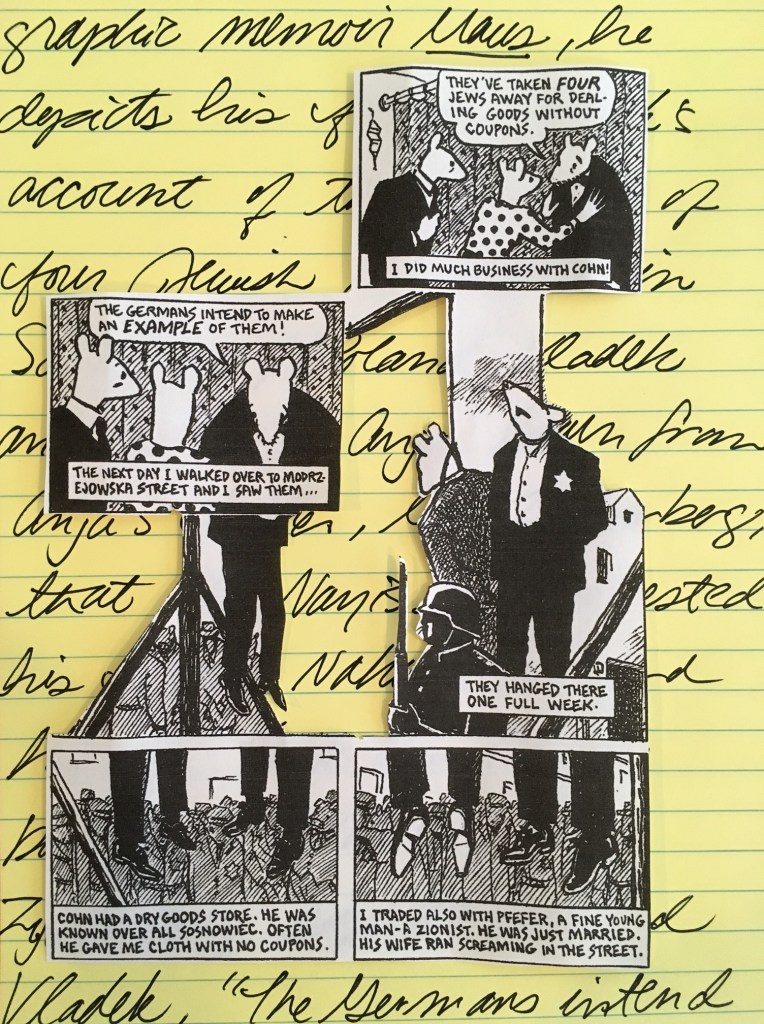 graphic memoir Maus, he
depicts his
account of of
four Jewish in
Vladek
from
Anja's
that
his
Vladek, "The Germans intend
THEY'VE TAKEN FOUR
JEWS AWAY FOR DEAL-
ING GOODS WITHOUT
COUPONS.
I DID MUCH BUSINESS WITH COHN!
THE GERMANS INTEND TO MAKE
AN EXAMPLE OF THEM!
THE NEXT DAY I WALKED OVER TO MODRZ-
EJOWSKA STREET AND I SAW THEM...
THEY HANGED THERE
ONE FULL WEEK.
COHN HAD A DRY GOODS STORE. HE WAS
KNOWN OVER ALL SOSNOWIEC. OFTEN
HE GAVE ME CLOTH WITH NO COUPONS.
I TRADED ALSO WITH PFEFER, A FINE YOUNG
MAN-A ZIONIST. HE WAS JUST MARRIED.
HIS WIFE RAN SCREAMING IN THE STREET.